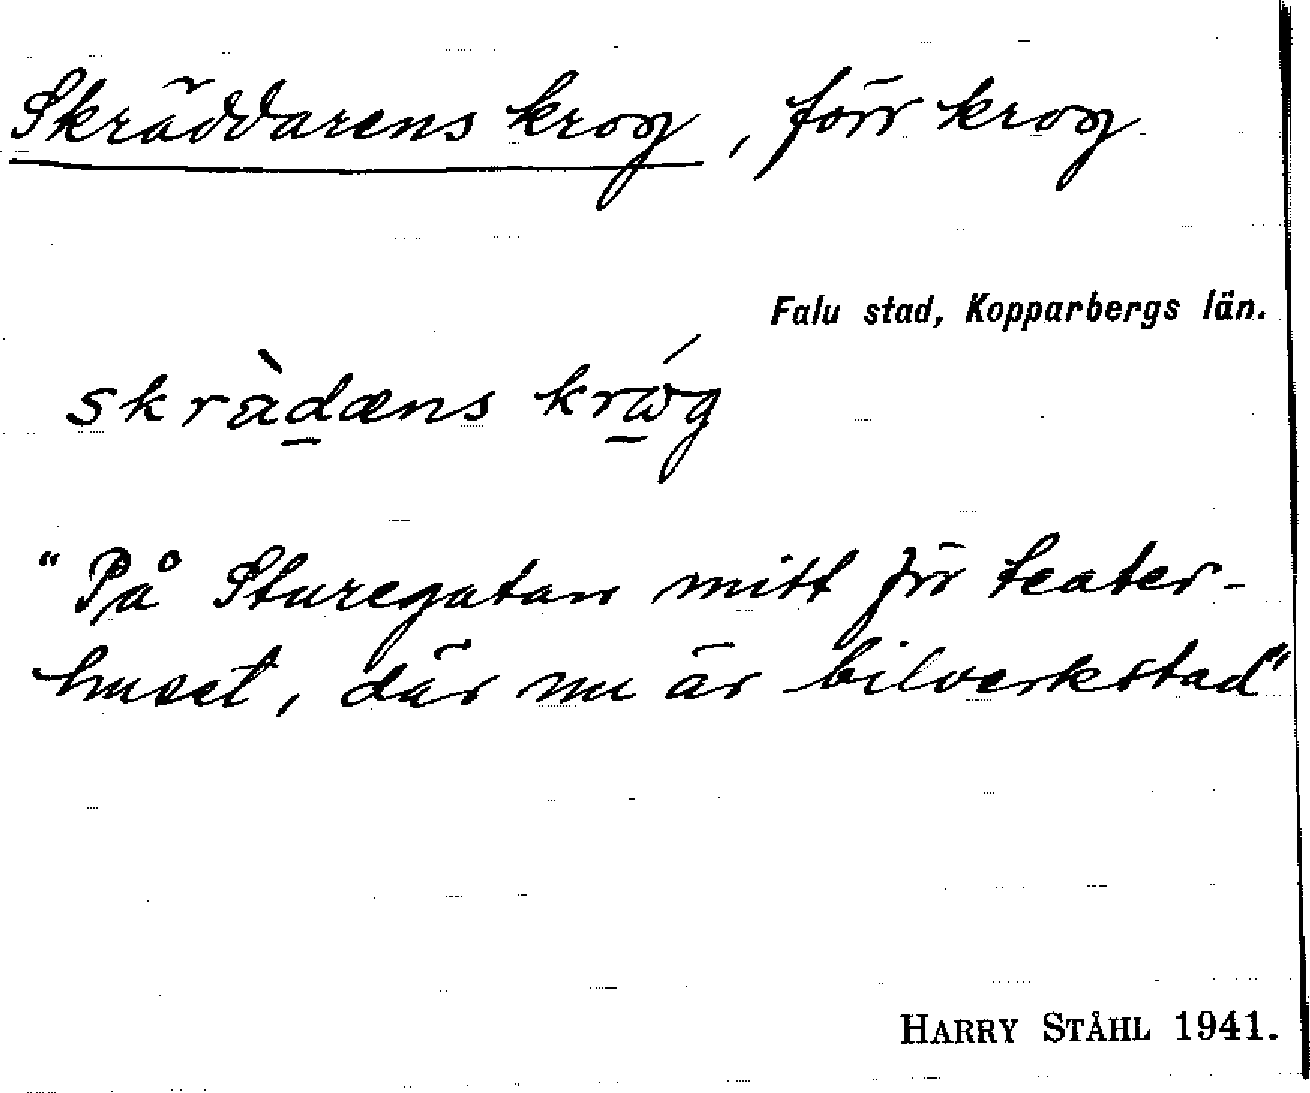 Skräddarens krog, förr krog
Falu stad, Kopparbergs län.
skràd̲æns krώ̲g
"På Sturegatan mitt för teater-
huset, där nu är bilverkstad"
HARRY STÅHL 1941.